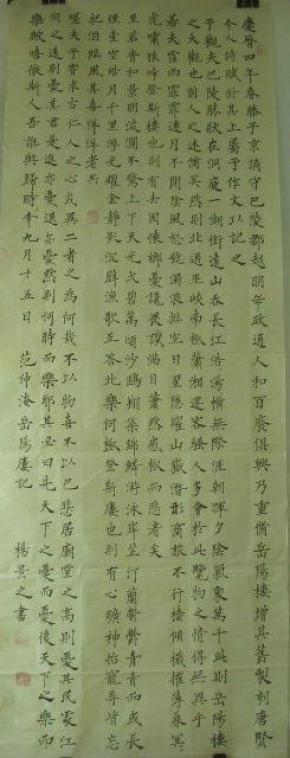 慶曆四年春滕子京謫守巴陵郡越明年政通人和百廢俱興乃重脩岳陽樓增其舊製刻唐賢
今人詩賦於其上屬予作文以記之
予觀夫巴陵勝狀在洞庭一湖銜遠山吞長江浩浩蕩蕩橫無際涯朝暉夕陰氣象萬千此則岳陽樓
之大觀也前人之述備矣然則北通巫峽南極瀟湘遷客騷人多會於此覽物之情得無異乎
若夫霪雨霏霏連月不開陰風怒號濁浪排空日星隱曜山嶽潛形商旅不行檣傾楫摧薄暮冥冥
虎嘯猿啼登斯樓也則有去國懷鄉憂讒畏譏滿目蕭然感極而悲者矣
至若春和景明波瀾不驚上下天光一碧萬頃沙鷗翔集錦鱗游泳岸芷汀蘭鬱鬱青青而或長
煙一空皓月千里浮光耀金靜影沉璧漁歌互答此樂何極登斯樓也則有心曠神怡寵辱皆忘
把酒臨風其喜洋洋者矣
嗟夫予嘗求古仁人之心或異二者之為何哉不以物喜不以己悲居廟堂之高則憂其民處江
湖之遠則憂其君是進亦憂退亦憂然則何時而樂耶其必曰先天下之憂而憂後天下之樂而
樂歟噫微斯人吾誰與歸時六年九月十五日 范仲淹岳陽樓記 楊景之書